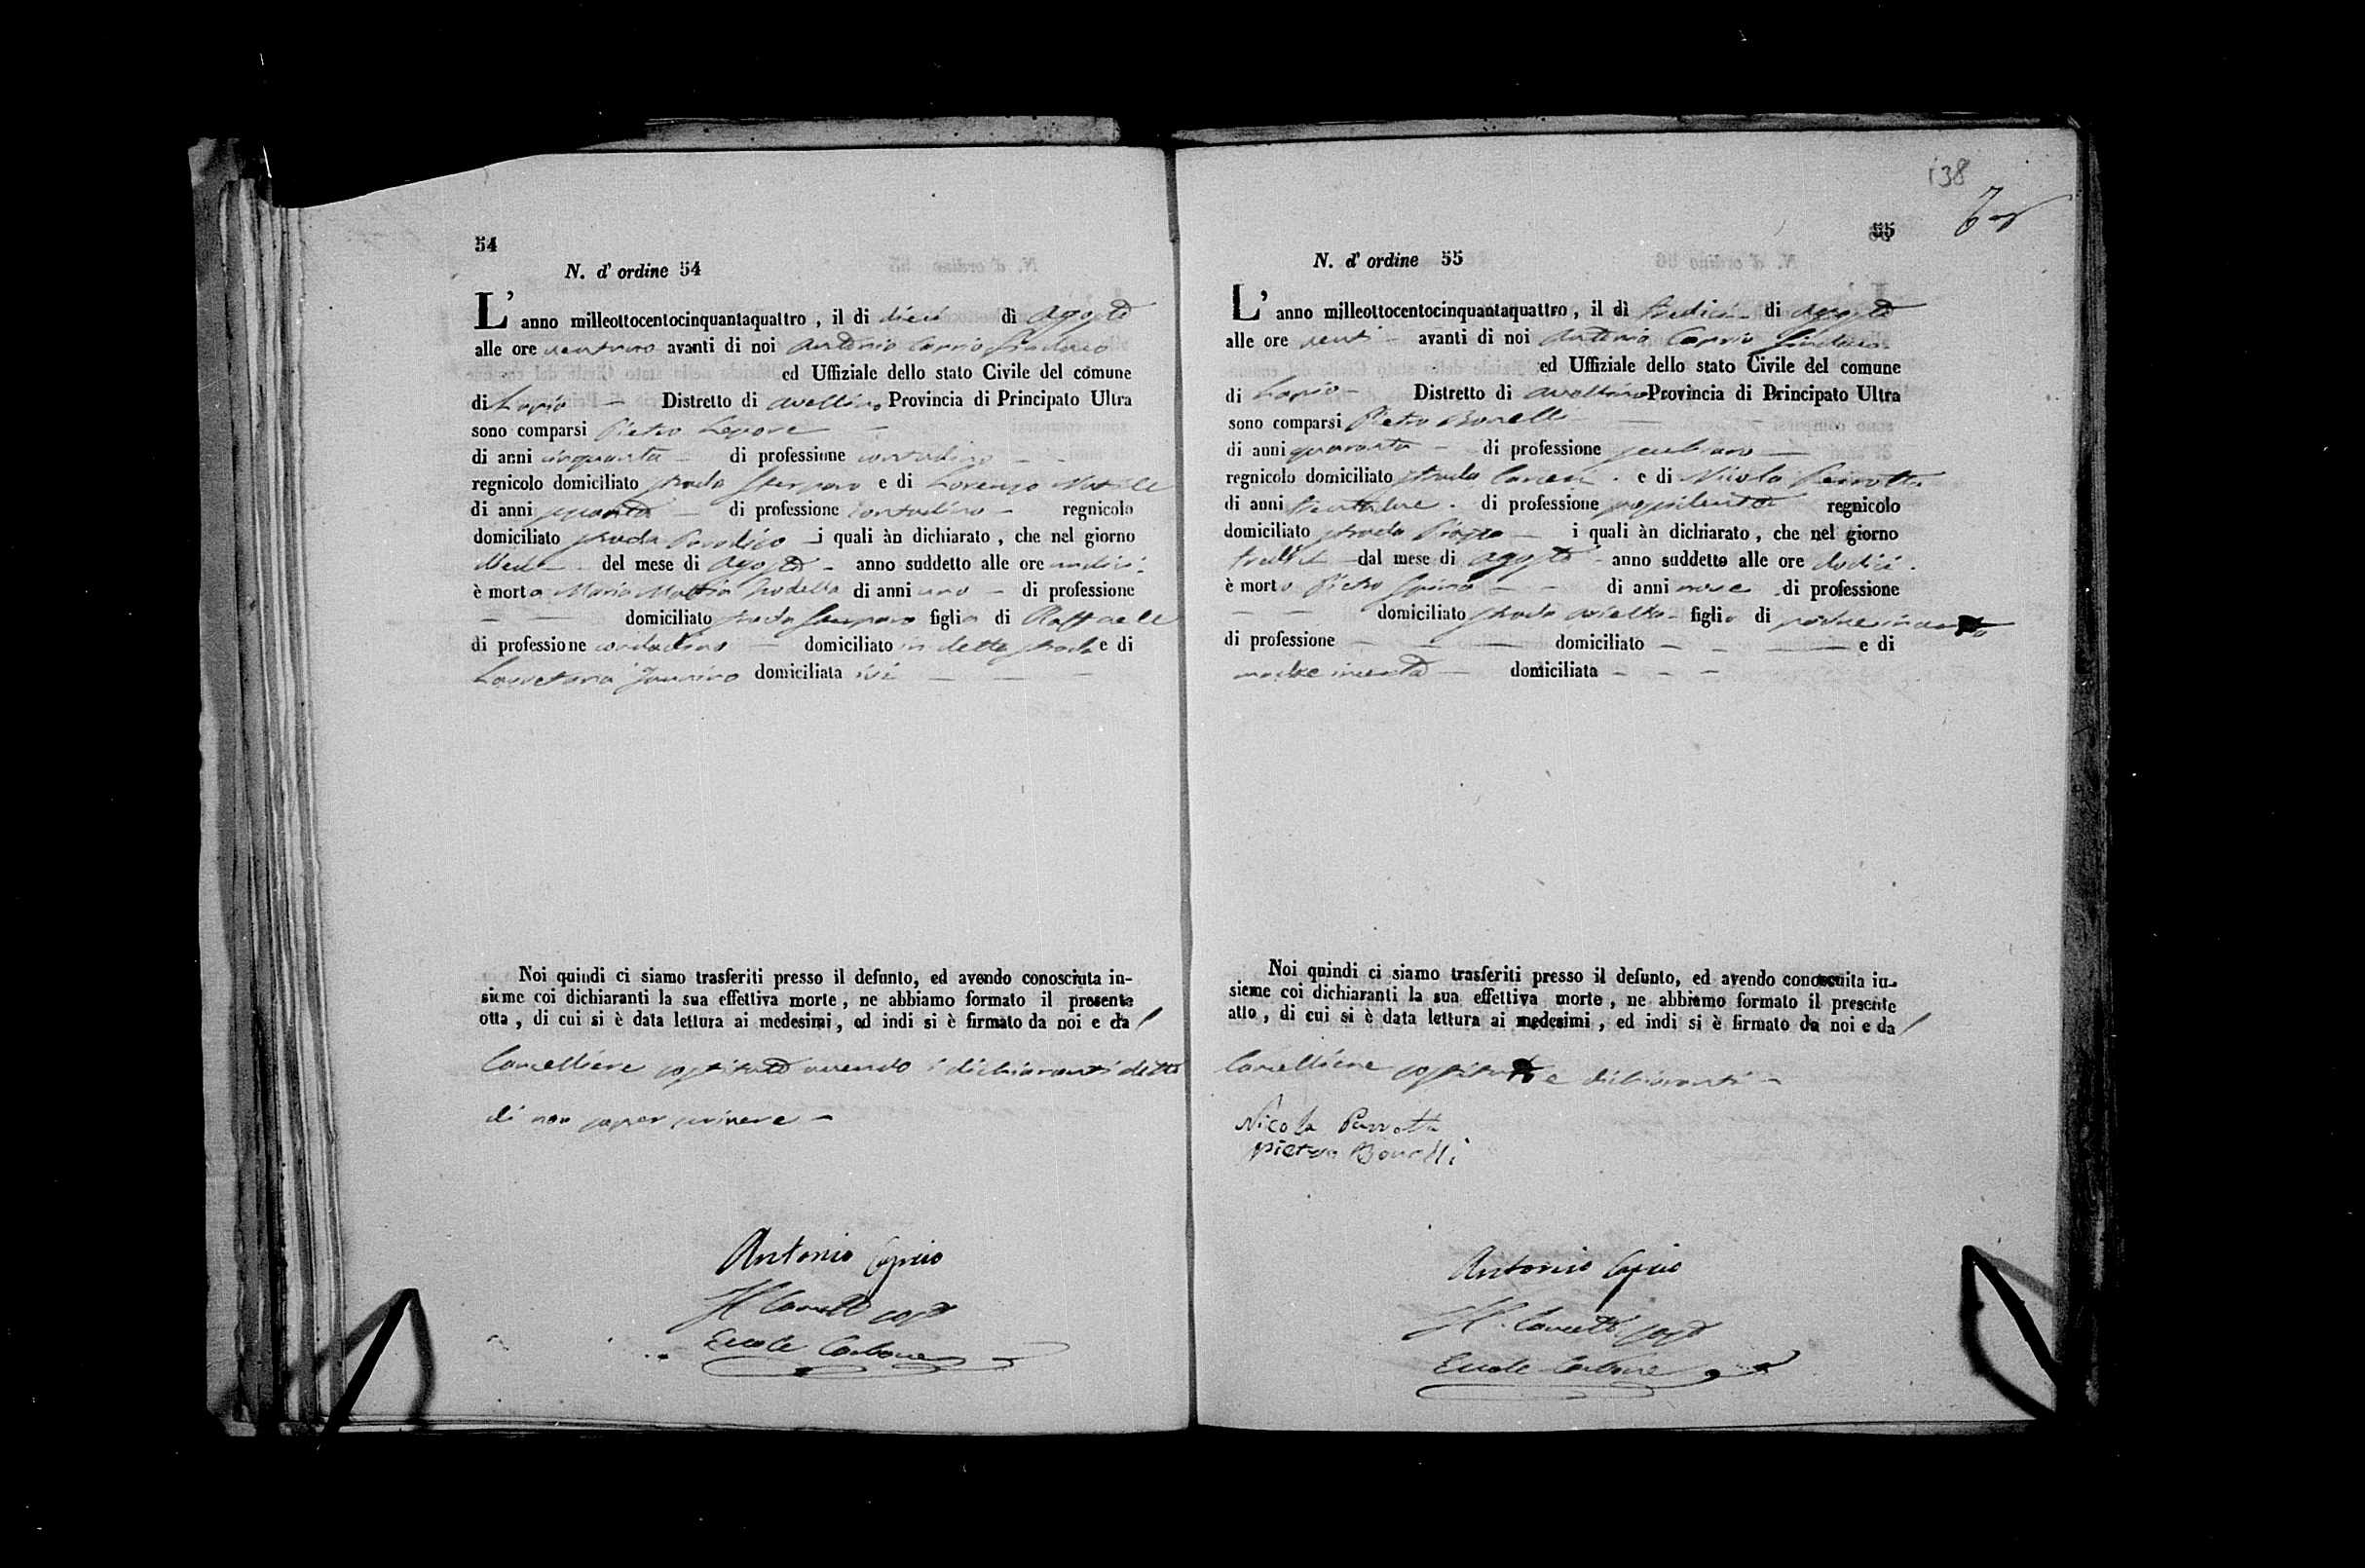 54
N. d' ordine 54
L' anno milleottocentocinquantaquattro , il di dieci di Agosto
alle ore ventuno avanti di noi Antonio Caprio Sindaco
ed Uffiziale dello stato Civile del comune
di Lapio — Distretto di Avellino Provincia di Principato Ultra
sono comparsi Pietro Lepore —
di anni cinquanta — di professione contadino — -
regnicolo domiciliato strada e di Lorenzo
di anni — di professione Contadino — regnicolo
domiciliato strada Paradiso — i quali àn dichiarato , che nel giorno
dieci — del mese di Agosto - anno suddetto alle ore undici .
è morta Maria di anni uno — di professione
— — domiciliato strada figlia di Raffaele
di professione contadino — domiciliato in detta strada e di
domiciliata ivi — — —
Noi quindi ci siamo trasferiti presso il defunto, ed avendo conosciuta in-
sieme coi dichiaranti la sua effettiva morte , ne abbiamo formato il presente
otta , di cui si è data lettura ai medesimi , ed indi si è firmato da noi e da
Cancelliere sostituto avendo i dichiaranti detto
di non saper scrivere —
Antonio Caprio
Il sost
Ercole Carbone
138
55
N. d' ordine 55
L' anno milleottocentocinquantaquattro , il dì tredici di Agosto
alle ore venti — avanti di noi Antonio Caprio Sindaco
ed Uffiziale dello stato Civile del comune
di Lapio — Distretto di Avellino Provincia di Principato Ultra
sono comparsi Pietro Bonelli —
di anni quaranta — di professione —
regnicolo domiciliato strada . e di Nicola Perrotta
di anni . di professione regnicolo
domiciliato strada Piazza — i quali àn dichiarato , che nel giorno
tredici — dal mese di Agosto - anno suddetto alle ore dodici .
è morto Pietro — - di anni nove di professione
— — domiciliato strada — figlio di padre incerto
di professione — — — domiciliato — — — e di
madre incerta — domiciliata — — —
Noi quindi ci siamo trasferiti presso il defunto, ed avendo conoscuita in-
sieme coi dichiaranti la sua effettiva morte , ne abbiamo formato il presente
atto , di cui si è data lettura ai medesimi , ed indi si è firmato da noi e da
Cancelliere sostituto e dichiaranti —
Nicola Perrotta
Pietro Bonelli
Antonio Caprio
Il sost
Ercole Carbone